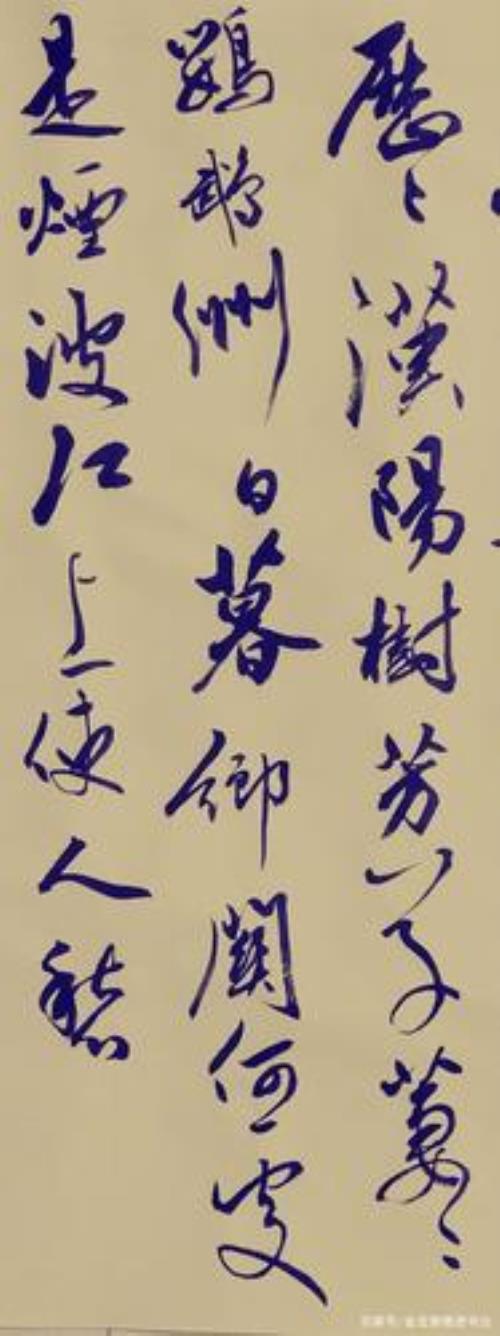 歷々漢陽樹芳草萋々
鸚鵡洲日暮鄉關何處
是煙波江上使人愁